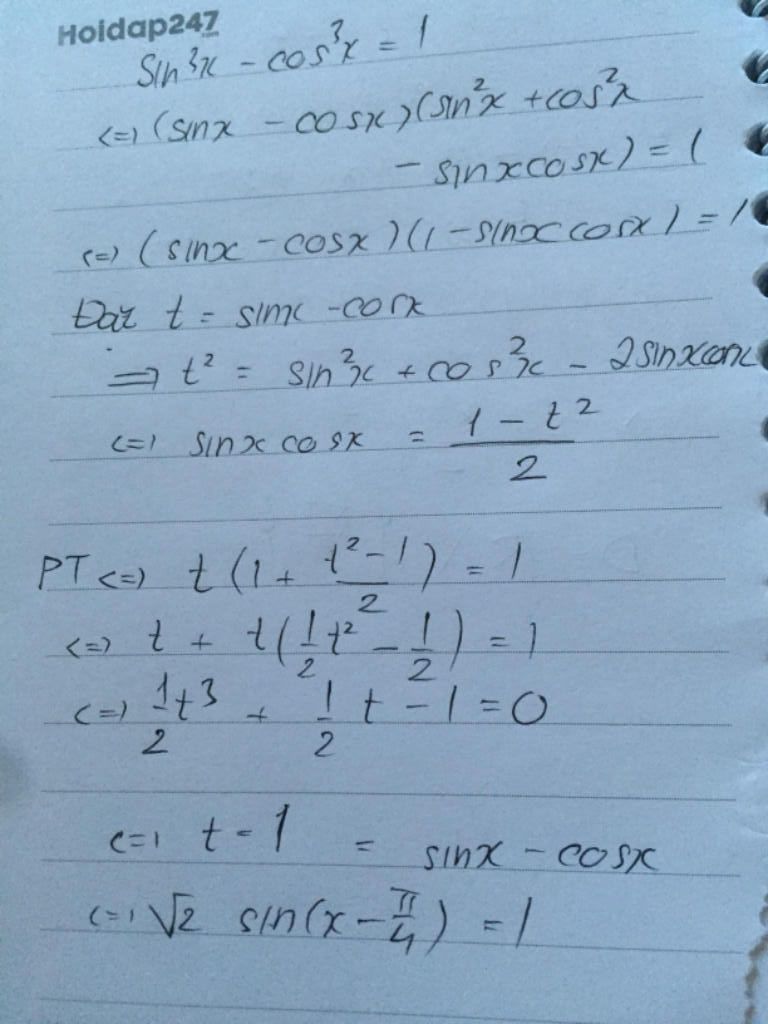 Hoidap247
sin³x - cos³x = 1
<=> (sinx - cosx)(sin²x + cos²x
- sinxcosx) = 1
<=> (sinx - cosx)(1 - sinxcosx) = 1
Đặt t = sinx - cosx
=> t² = sin²x + cos²x - 2sinxcosx
<=> sinxcosx = (1 - t²)/2
PT <=> t(1 + (t² - 1)/2) = 1
<=> t + t(1/2t² - 1/2) = 1
<=> 1/2t³ + 1/2t - 1 = 0
<=> t = 1 = sinx - cosx
<=> √2 sin(x - π/4) = 1